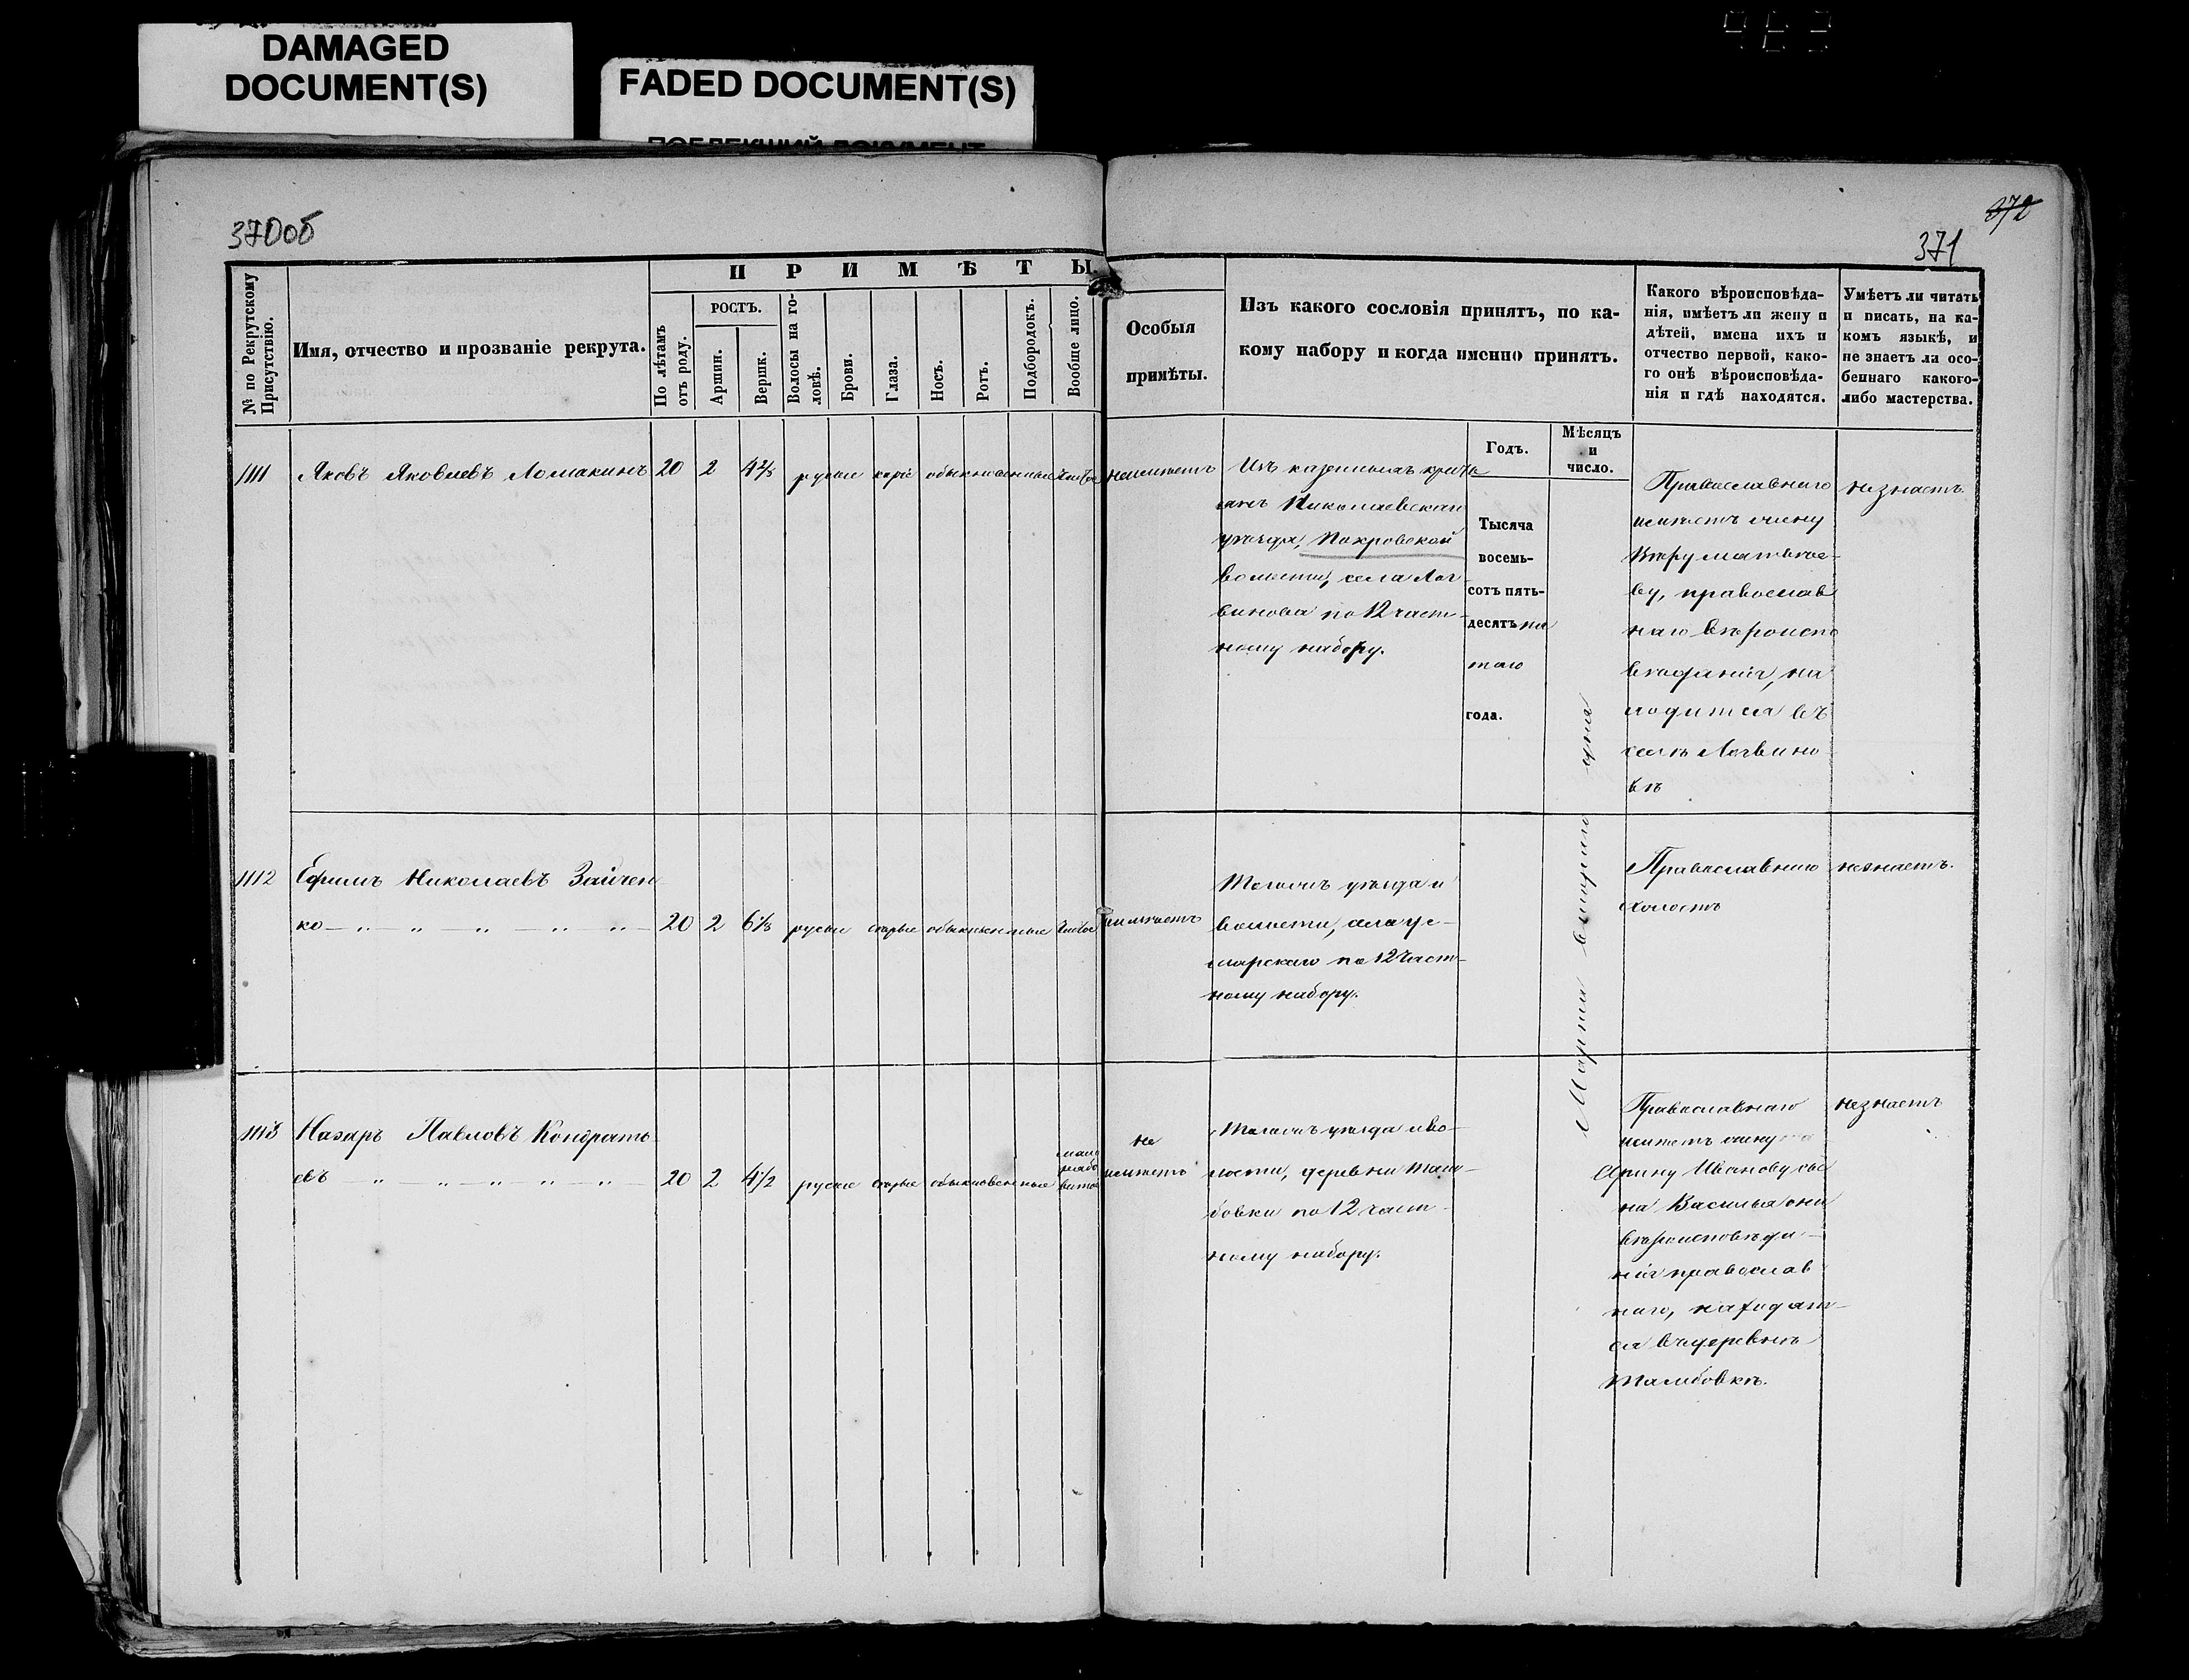 DAMAGED
DOCUMENT(S)
FADED DOCUMENT(S)
370об
372
371
№ по Рекрутскому
Присутствію.
Имя, отчество и прозваніе рекрута.
ПРИМѢТЫ.
По лѣтамъ
отъ роду.
РОСТЪ.
Аршин.
Вершк.
Волосы на го-
ловѣ.
Брови.
Глаза.
Носъ.
Ротъ.
Подбородокъ.
Вообще лицо.
Особыя
примѣты.
Изъ какого сословія принятъ, по ка-
кому набору и когда именно принятъ.
Какого вѣроисповѣда-
нія, имѣетъ ли жену и
дѣтей, имена ихъ и
отчество первой, како-
го онѣ вѣроисповѣда-
нія и гдѣ находятся.
Умѣетъ ли читать
и писать, на ка-
комъ языкѣ, и
не знаетъ ли осо-
беннаго какого-
либо мастерства.
Годъ.
Мѣсяцъ
и
число.
1111
Яковъ Яковлевъ Ломакинъ
20
2
4 2/8
русые
каріе
обыкновенные
чистое
неимѣетъ
Изъ казенныхъ крестьянъ Николаевскаго
уѣзда, Покровской
волости, села Лог-
винова по 12 част-
ному набору.
Тысяча
восемь-
сотъ пять-
десятъ пя
таго
года.
Марта втораго дня
Православнаго
имѣетъ жену
Вѣру Матвѣе-
ву, православ
наго вѣроиспо
вѣданія, на
ходится въ
селѣ Логвино
вѣ
незнаетъ.
1112
Ефимъ Николаевъ Зайчен
ко — „ — „ — „ — „ — „ —
20
2
6 1/8
русые
сѣрые
обыкновенные
чистое
неимѣетъ
Тогожъ уѣзда и
волости, села
по 12 част-
ному набору.
Православнаго
холостъ
незнаетъ.
1113
Назаръ Павловъ Кондрать-
евъ — „ — „ — „ — „ — „ —
20
2
4 1/2
русые
сѣрые
обыкновенные
мало
рябо
ватое
не
имѣетъ
Тогожъ уѣзда и во-
лости, деревни Там-
бовки по 12 част-
ному набору.
Православнаго
имѣетъ жену
Арину Иванову сы
на Василья они
вѣроисповѣда-
нія православ
наго, находят-
ся въ деревнѣ
Тамбовкѣ.
незнаетъ